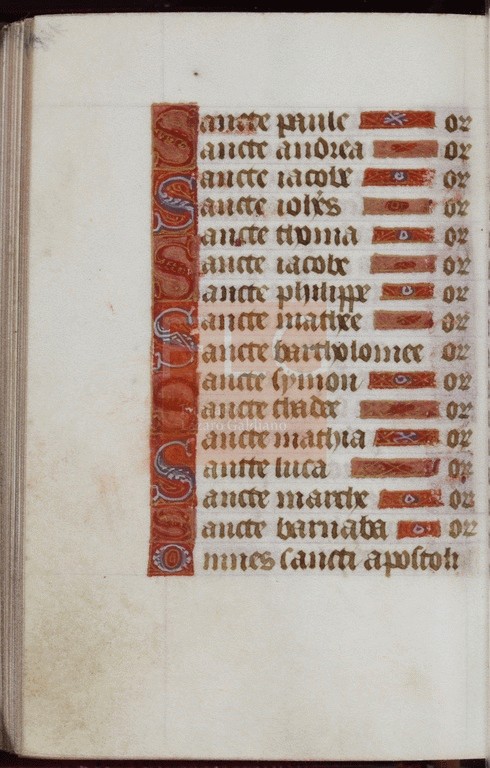 Sancte paule or
Sancte andrea or
Sancte iacobe or
Sancte iohēs or
Sancte thoma or
Sancte iacobe or
Sancte philippe or
Sancte mathee or
Sancte bartholomee or
Sancte symon or
Sancte thadee or
Sancte mathia or
Sancte luca or
Sancte marche or
Sancte barnaba or
Omnes sancti apostoli
Lázaro Galdiano